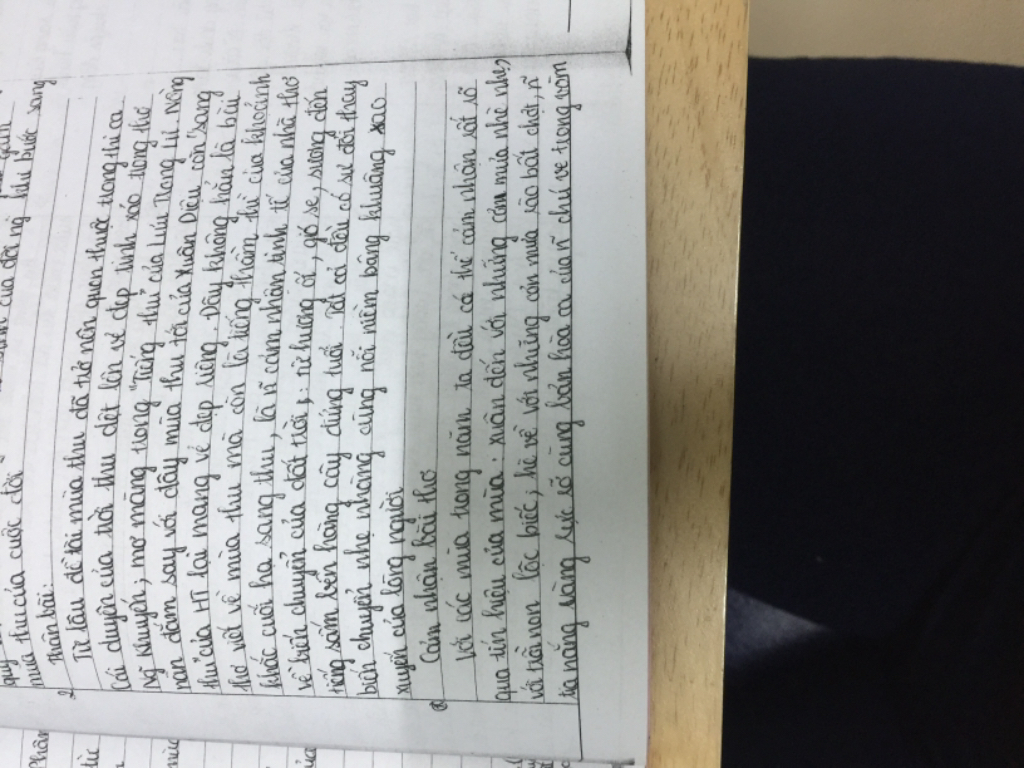 quy
thu của cuộc đời
mùa
2 Thân bài:
Từ lâu đề tài mùa thu đã trở nên quen thuộc trong thi ca
Cái chuyển của trời thu dệt lên vẻ đẹp tinh xảo trong thơ
Ng Khuyến; mơ màng trong "Tiếng thu" của Lưu Trọng Lư nồng
nàn đắm say với đây mùa thu tới của Xuân Diệu còn "Sang
thu" của HT lại mang vẻ đẹp riêng. Đây không hẳn là bài
thơ viết về mùa thu mà còn là tiếng thầm thì của khoảnh
khắc cuối hạ sang thu, là sự cảm nhận tinh tế của nhà thơ
về biến chuyển của đất trời: từ hương ổi, gió se, sương đến
tiếng sấm trên hàng cây đứng tuổi. Tất cả đều có sự đổi thay
biến chuyển nhẹ nhàng cùng nỗi niềm bâng khuâng xao
xuyến của lòng người
Cảm nhận bài thơ
Với các mùa trong năm ta đều có thể cảm nhận rất rõ
qua tín hiệu của mùa: xuân đến với những cơn mưa nhè nhẹ,
với non lộc biếc, hè về với những cơn mưa rào bất chợt, rõ
là nắng vàng rực rỡ cùng bản hòa ca của chú ve trong vòm